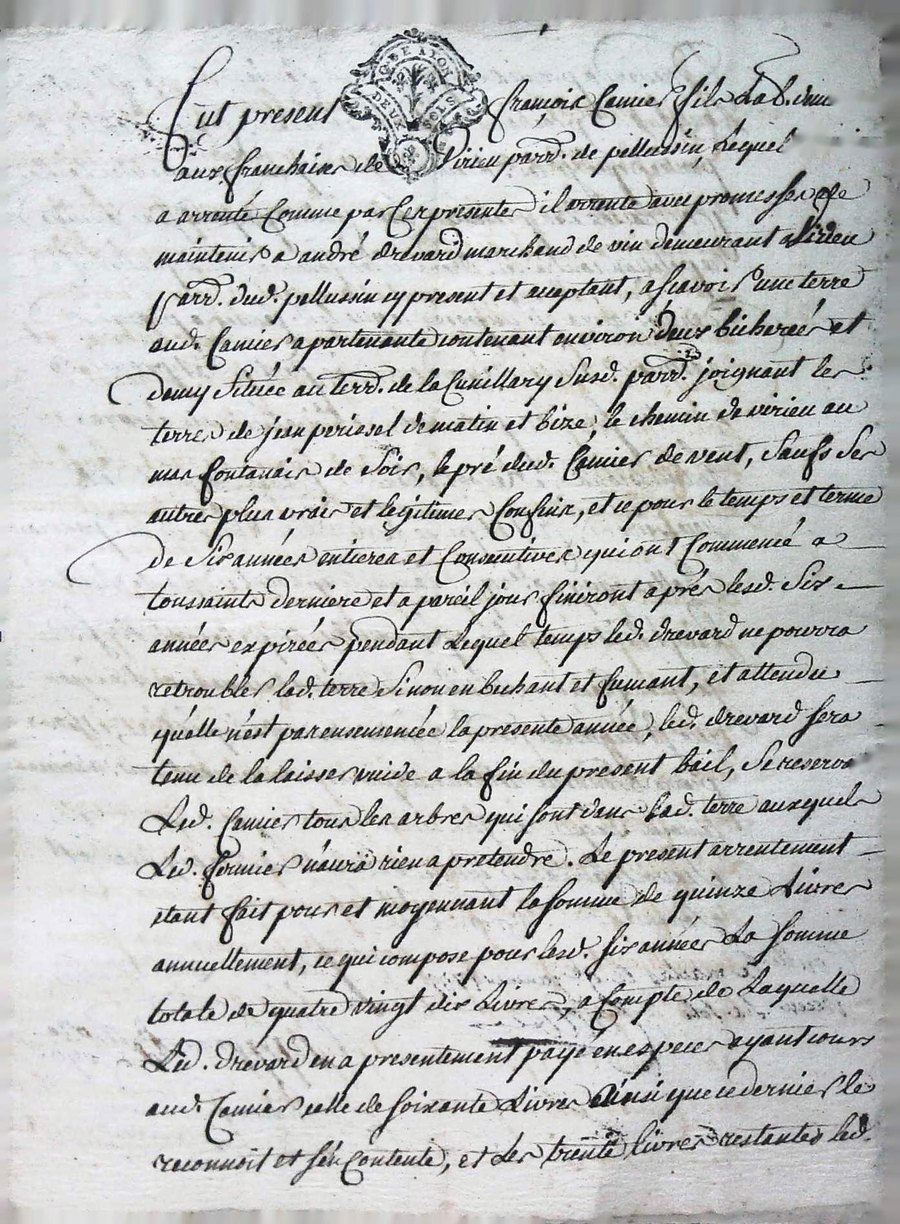 G DE LYON
DEUX SOLS
Fut present françois Camier fils Lab. dem
aux franchises de Virieu parr. de pellussin, Lequel
a arrenté Comme par Ces presentes il arrente avec promesses de
maintenir a andré drevard marchand de vin demeurant a Virieu
parr. dud. pellussin cy present et aceptant, a sçavoir une terre
aud. Camier apartenante contenant environ deux bicherées et
demy Située au terr. de la Cunillary Susd. parr. joignant les
terres de jean periesel de matin et bize, le chemin de virieu au
mas fontanais de Soir, le pré dud. Camier de vent, Saufs Ses
autres plus vrais et legitimes Confins, et ce pour le temps et terme
de Six années entieres et Consecutives qui ont Commencé a
toussaints derniere et a pareil jour finiront aprés lesd. Six
années expirées pendant Lequel temps led. drevard ne pourra
retroubler lad. terre Sinon en bechant et fumant, et attendu
qu'elle n'est pas ensemencée la presente année, led. drevard sera
tenu de la laisser vuide a la fin du present bail, Se reserve
Led. Camier tous les arbres qui sont dans lad. terre auxquels
Led. fermier n'aura rien a pretendre. Le present arrentement
etant fait pour et moyennant la somme de quinze Livres
annuellement, ce qui compose pour lesd. six années La somme
totale de quatre vingt dix Livres, a Compte de Laquelle
Led. drevard en a presentement payé en especes ayant cours
aud. Camier celle de soixante Livres Ainsi que ce dernier le
reconnoit et s'en Contente, et Les trente livres restantes led.